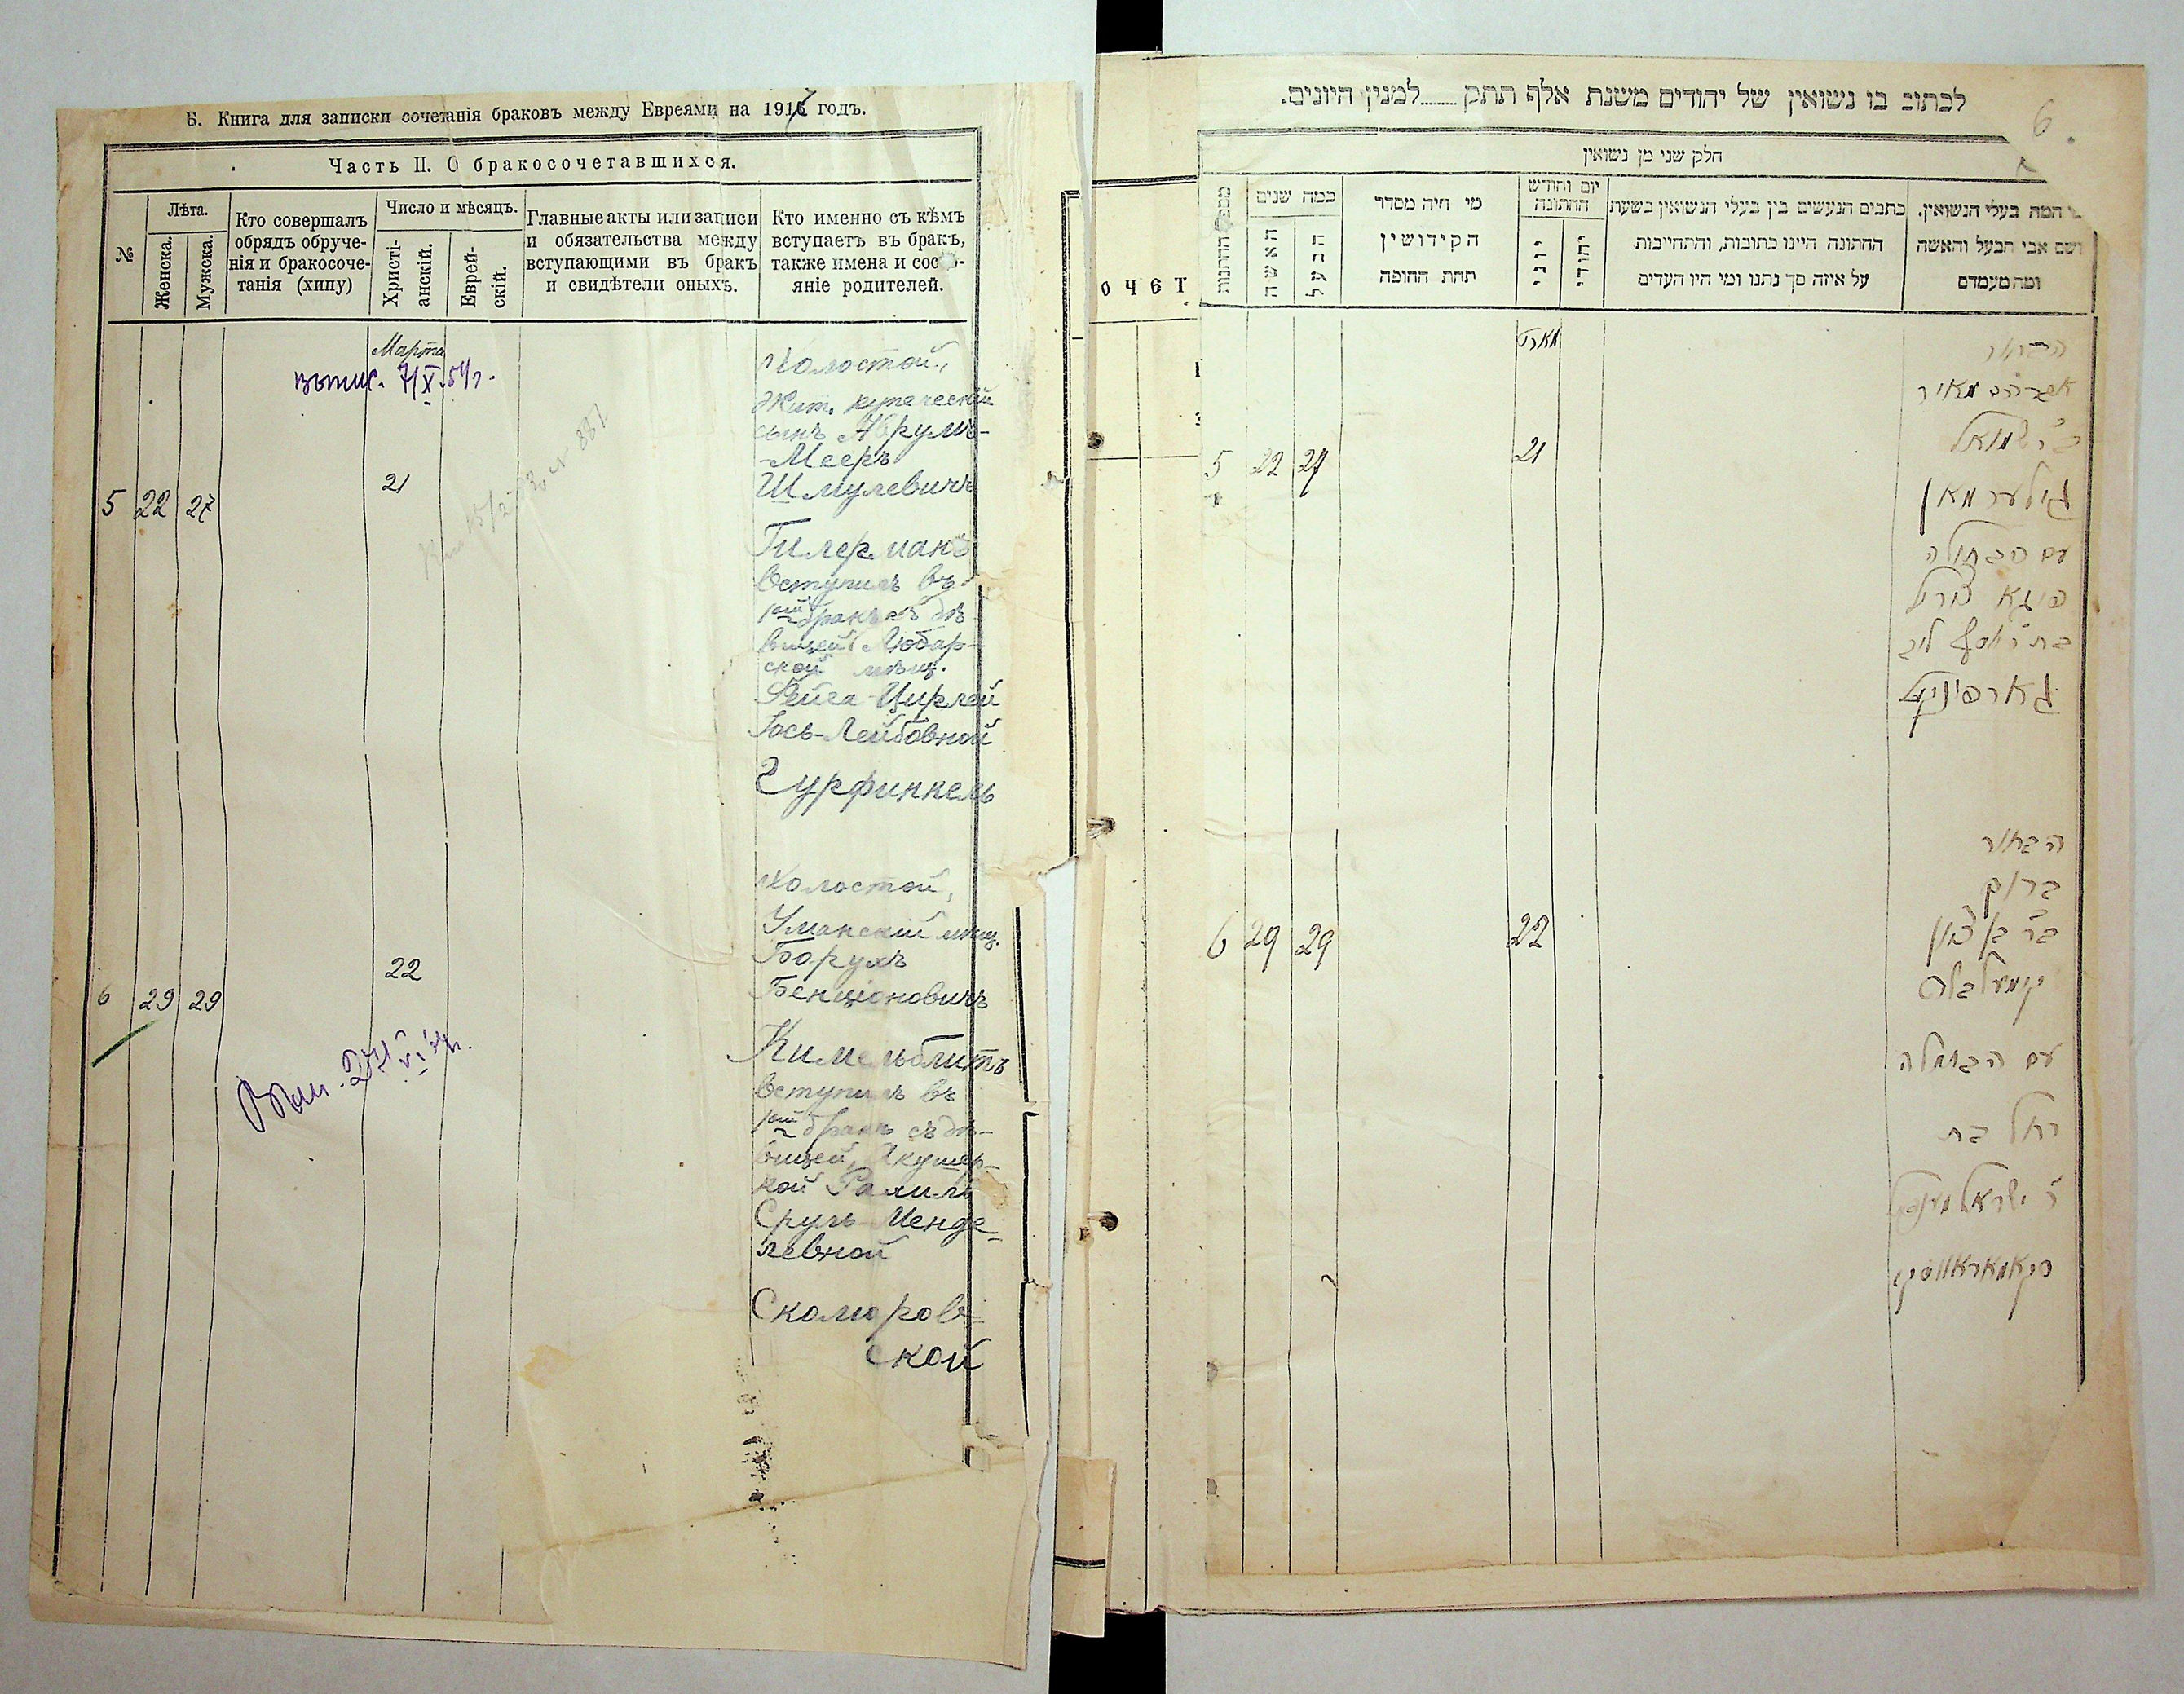 Б. Книга для записки сочетанія браковъ между Евреями на 1917 годъ.
Часть II. О бракосочетавшихся.
№
Лѣта.
Женска.
Мужска.
Кто совершалъ
обрядъ обруче-
нія и бракосоче-
танія (хипу)
Число и мѣсяцъ.
Христі-
анскій.
Еврей-
скій.
Главные акты или записи
и обязательства между
вступающими въ бракъ
и свидѣтели оныхъ.
Кто именно съ кѣмъ
вступаетъ въ бракъ,
также имена и состо-
яніе родителей.
Марта
выпис. 7/X.51г.
5 22 27
21
Холостой,
Жит. купеческій
сынъ Абрумъ-
-Мееръ
Шмулевичъ
Гилерманъ
вступилъ въ
1ый бракъ съ дѣ-
вицей Любар-
ской мѣщ.
Фейга-Цирлей
Іось-Лейбовной
Гурфинкель
6 29 29
22
Холостой,
Уманскій мѣщ.
Борухъ
Бенціоновичъ
Кимельблитъ
вступилъ въ
1ый бракъ съ дѣ-
вицей, Акушер-
кой Рахиль
Сруль-Менде-
левной
Скоморов-
ской
очет
לכתוב בו נשואין של יהודים משנת אלף תתק........למנין היונים.
6
חלק שני מן נשואין
מספר החתונות
כמה שנים
האשה
הבעל
מי היה מסדר
הקידושין
תחת החופה
יום וחודש
החתונה
יוני
יהודי
כתבים הנעשים בין בעלי הנשואין בשעת
החתונה היינו כתובות, והתחייבות
על איזה סך נתנו ומי היו העדים
מי המה בעלי הנשואין.
ושם אבי הבעל והאשה
ומה מעמדם
מארט
5 22 27
21
הבחור
אברהם מאיר
ב״ר שמואל
גילערמאן
עם הבתולה
פיגא צירל
בת ר׳ יוסף ליב
גארפינקיל
6 29 29
22
הבחור
ברוך
ב״ר בן ציון
קימעלבלט
עם הבתולה
רחל בת
ר׳ ישראל מענדיל
סקאמאראווסקי